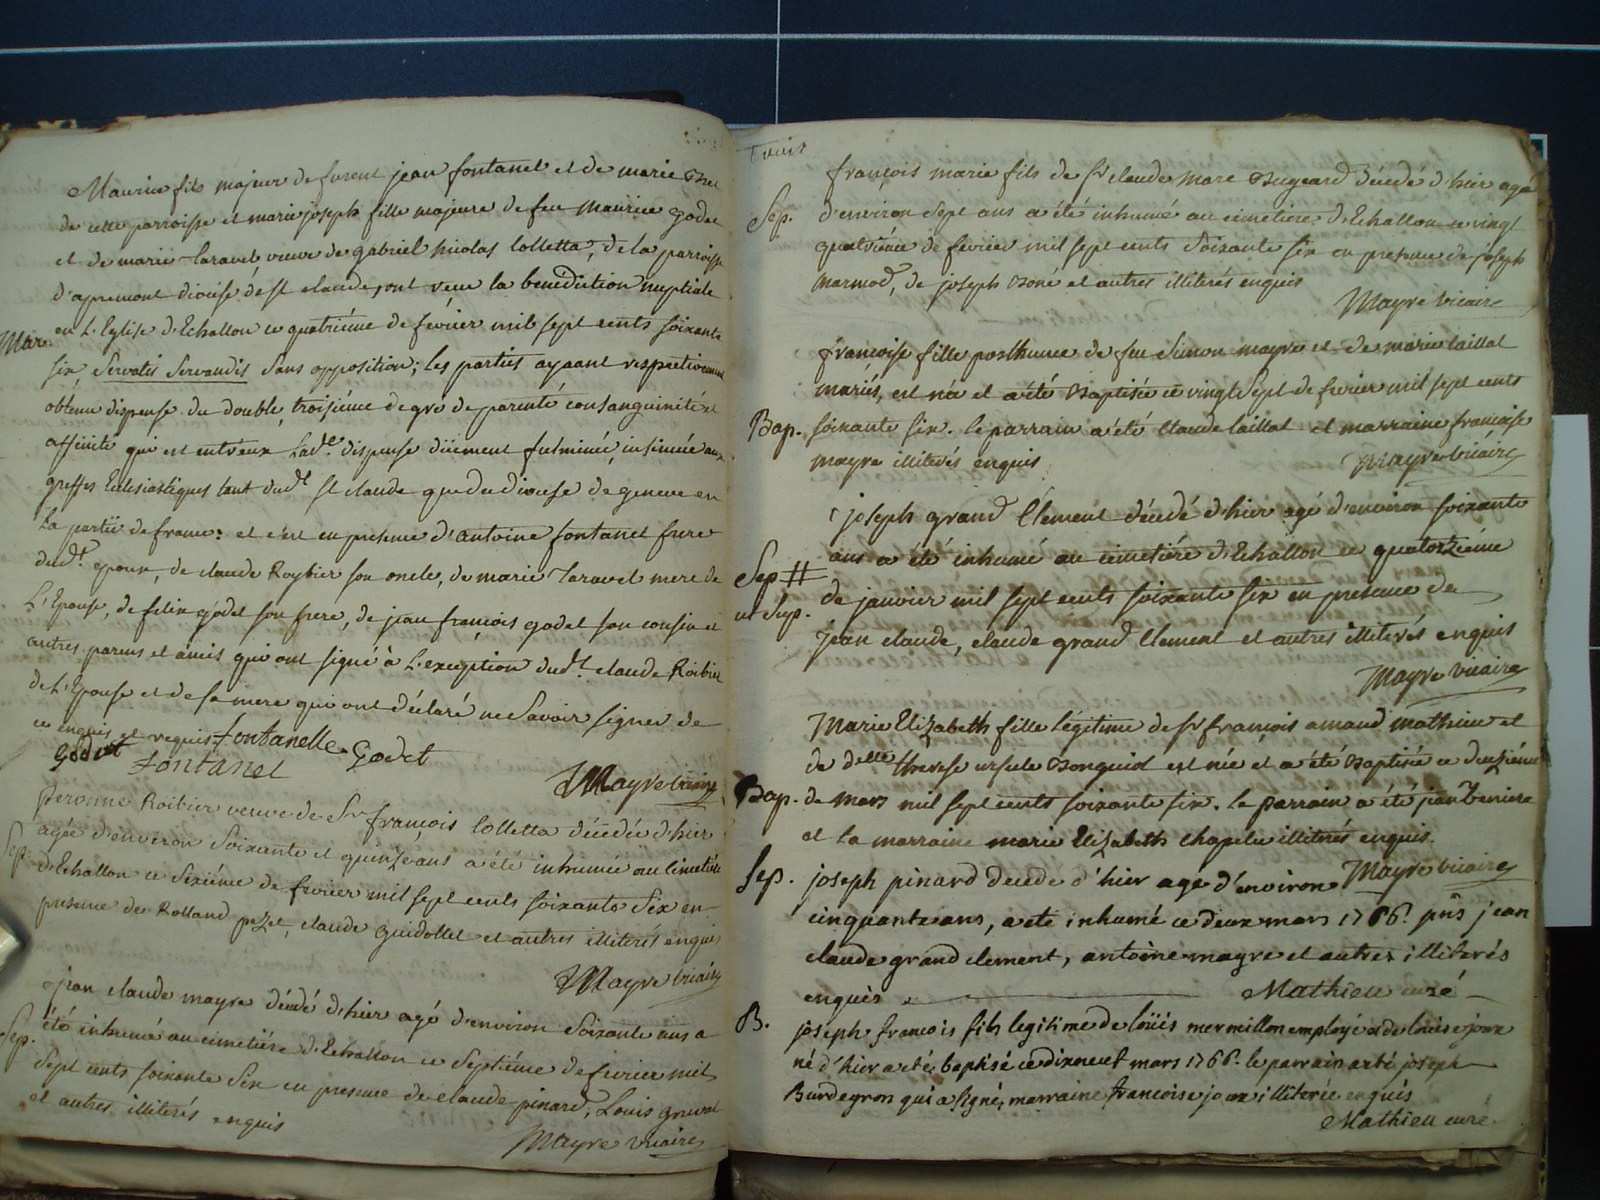 Maurice fils majeur de furent jean fontanel et de marie
de cette parroisse et marie joseph fille majeure de feu Maurice godet
et de marie taravel veuve de gabriel nicolas Colletta, de la parroisse
d'apremont diocese de st claude, ont recu la benediction nuptiale
Mar. en L'Eglise d'Echallon ce quatriéme de fevrier mil sept cents soixante
six Servatis Servandis sans opposition; les parties ayaant respectivement
obtenu dispense du double troisiéme degré de parenté consanguinité et
affinité qui est entr'eux Lad.e dispense düement fulminée, insinuée aux
greffes Eclesiastiques tant dud.t St claude que du diocese de geneve en
La partie de france; et c'est en presence d'antoine fontanel frere
dud.t epoux, de claude Roybier son oncle, de marie taravel mere de
L'Epouse, de felix godet son frere, de jean françois godet son cousin et
autres parens et amis qui ont signé à L'exception dud.t claude Roibier
de L'Epouse et de sa mere qui ont déclaré ne Savoir signer de
ce enquis et requis fontanelle Godet
Godet
fontanel
Mayre vicaire
Peronne Roibier veuve de Sr françois Colletta décedée d'hier
Sep. agée d'environ Soixante et quinze ans a été inhumée au Cimetiére
d'Echallon ce Sixiéme de fevrier mil sept cents soixante Six en
presence de Rolland pezet, claude guidollet et autres illiterés enquis
Mayre vicaire
jean claude mayre décédé d'hier agé d'environ Soixante ans a
Sep. été inhumé au cimetiére d'Echallon ce Septiéme de fevrier mil
Sept cents soixante Six en presence de claude pinard, Louis
et autres illiterés enquis
Mayre vicaire
Trois
françois marie fils de Sr claude Marc Bugeard décédé d'hier agé
Sep. d'environ Sept ans a été inhumé au cimetiere d'Echallon ce vingt
quatriéme de fevrier mil sept cents Soixante six en presence de joseph
marmod, de joseph Boné et autres illiterés enquis
Mayre vicaire
françoise fille posthume de feu Simon mayre et de marie laillat
mariés, est née et a été Baptisée ce vingt Sept de fevrier mil sept cents
Bap. soixante six. le parrain a été Claude laillat et marraine françoise
mayre illiterés enquis Mayre vicaire
joseph grand Clement décédé d'hier agé d'environ soixante
Sep ans a été inhumé au cimetiére d'Echallon ce quatorziéme
ut Sup. de janvier mil sept cents soixante six en presence de
jean claude, claude grand Clement et autres illiterés enquis
Mayre vicaire
Marie Elizabeth fille légitime de Sr françois amand mathieu et
de delle therese ursule Bonguiod est née et a été Baptisée ce deuxiéme
Bap. de mars mil sept cents soixante six. le parrain a été jean
et la marraine marie Elizabeth chapelu illiterés enquis.
Mayre vicaire
Sep. joseph pinard decede d'hier age d'environ
cinquante ans, a eté inhumé ce deux mars 1766. pns jean
claude grand clement, antoine mayre et autres illiterés
enquis Mathieu curé
B. joseph francois fils legitime de loüis mermillon employé et de louise joux
né d'hier a eté baptisé ce dixneuf mars 1766. le parrain a eté joseph
Burdeyron qui a signé, marraine francoise joux illiterée enquis
Mathieu curé